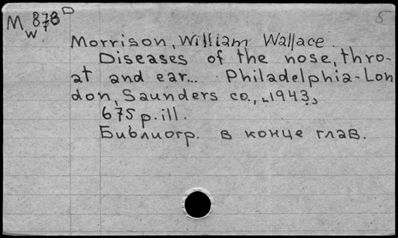 M 878 D
W
5
Morrison, William Wallace.
Diseases of the nose, thro-
at and ear... Philadelphia-Lon
don, Saunders co., 1943,
675 p. ill.
Библиогр. в конце глав.